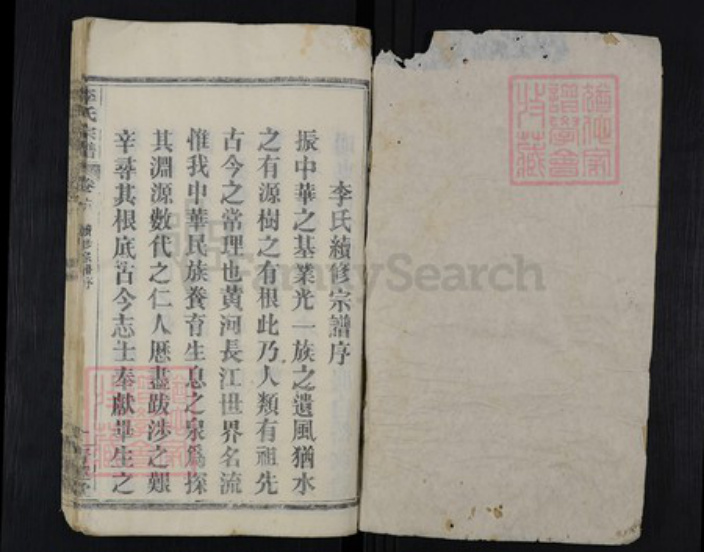 李氏續修宗譜序
振中華之基業光一族之遺風猶水
之有源樹之有根此乃人類有祖先
古今之常理也黄河長江世界名流
惟我中華民族養育生息之泉爲探
其淵源數代之仁人歷盡跋涉之艱
辛尋其根底古今志士奉獻畢生之
李氏宗譜
卷
續修宗譜序
FamilySearch